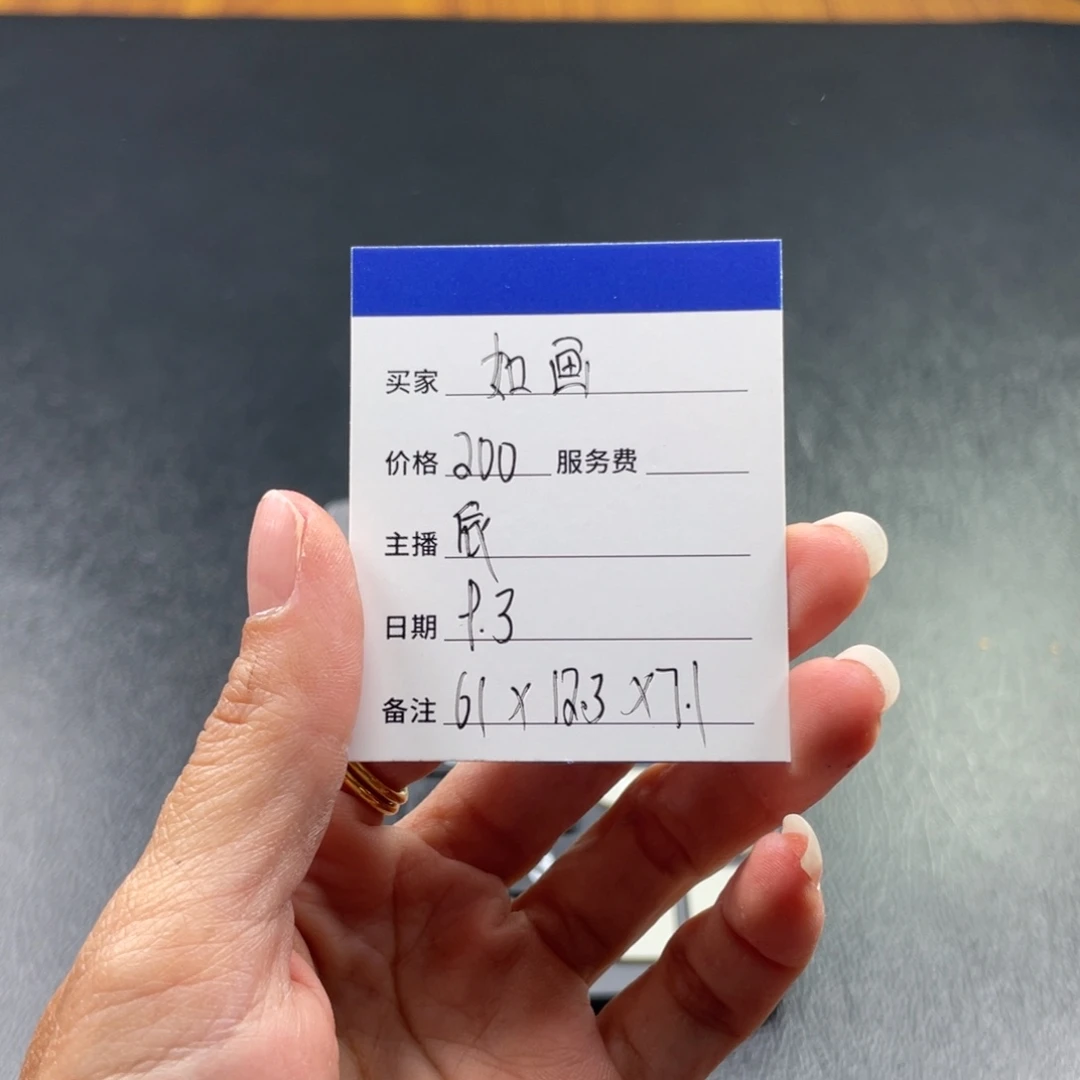 买家 如画
价格 200 服务费
主播 辰
日期 9.3
备注 61 x 12.3 x 7.1